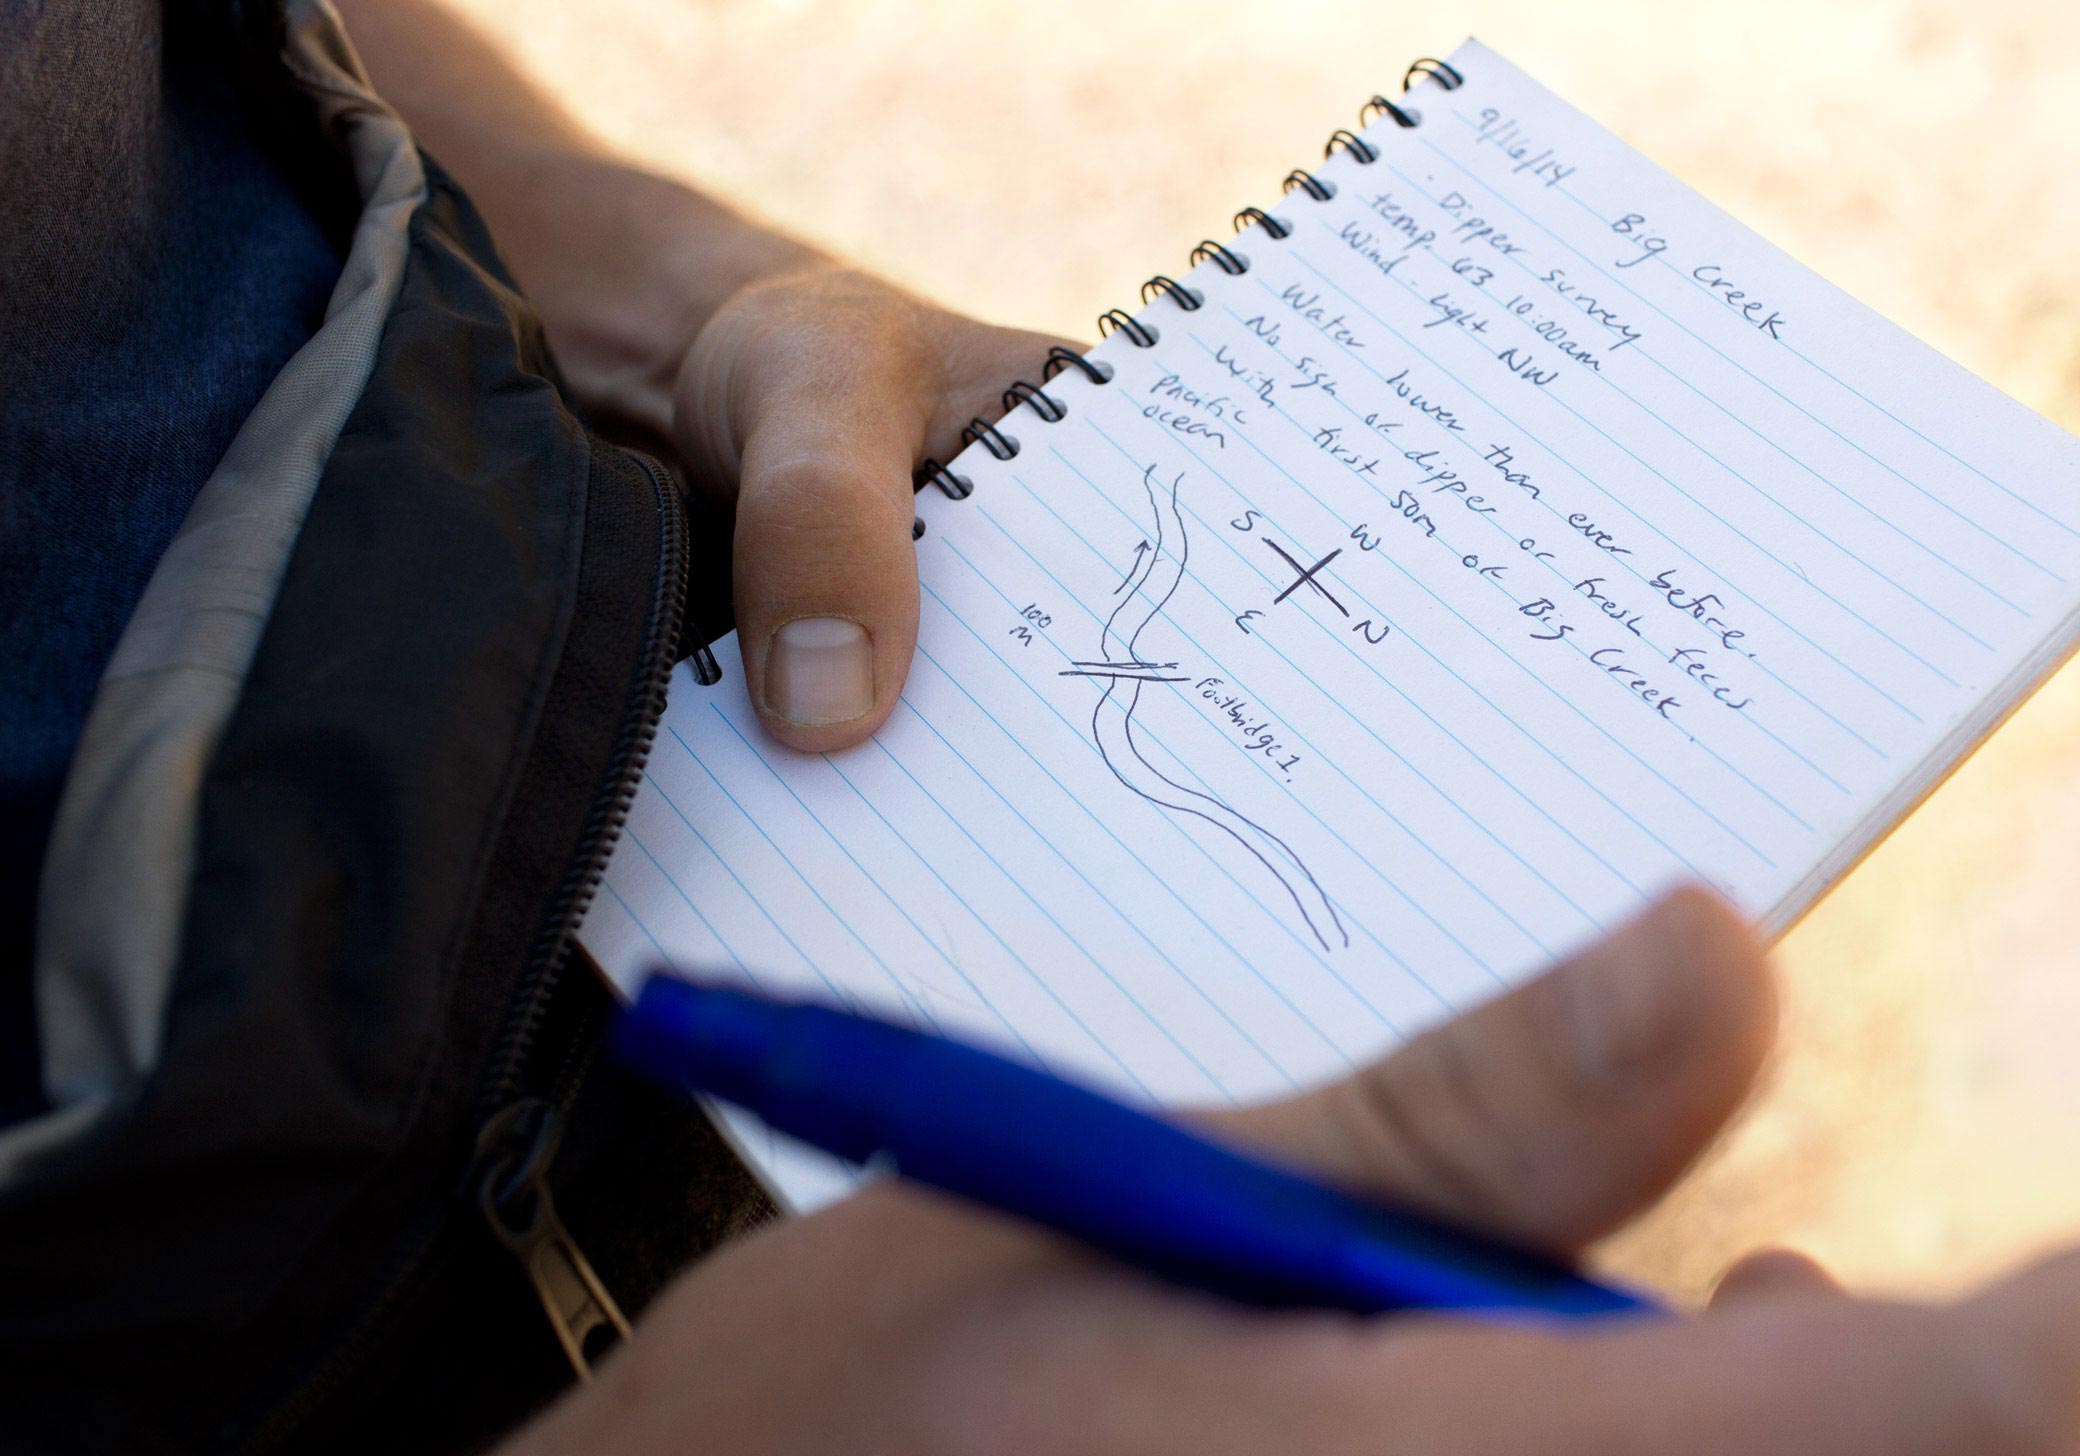 9/16/14 Big Creek
· Dipper survey
temp. 63 10:00am
Wind - light NW
Water lower than ever before.
No sign of dipper or fresh feces
with first 50m of Big Creek.
pacific
ocean
S W
E N
100
m
Footbridge 1.